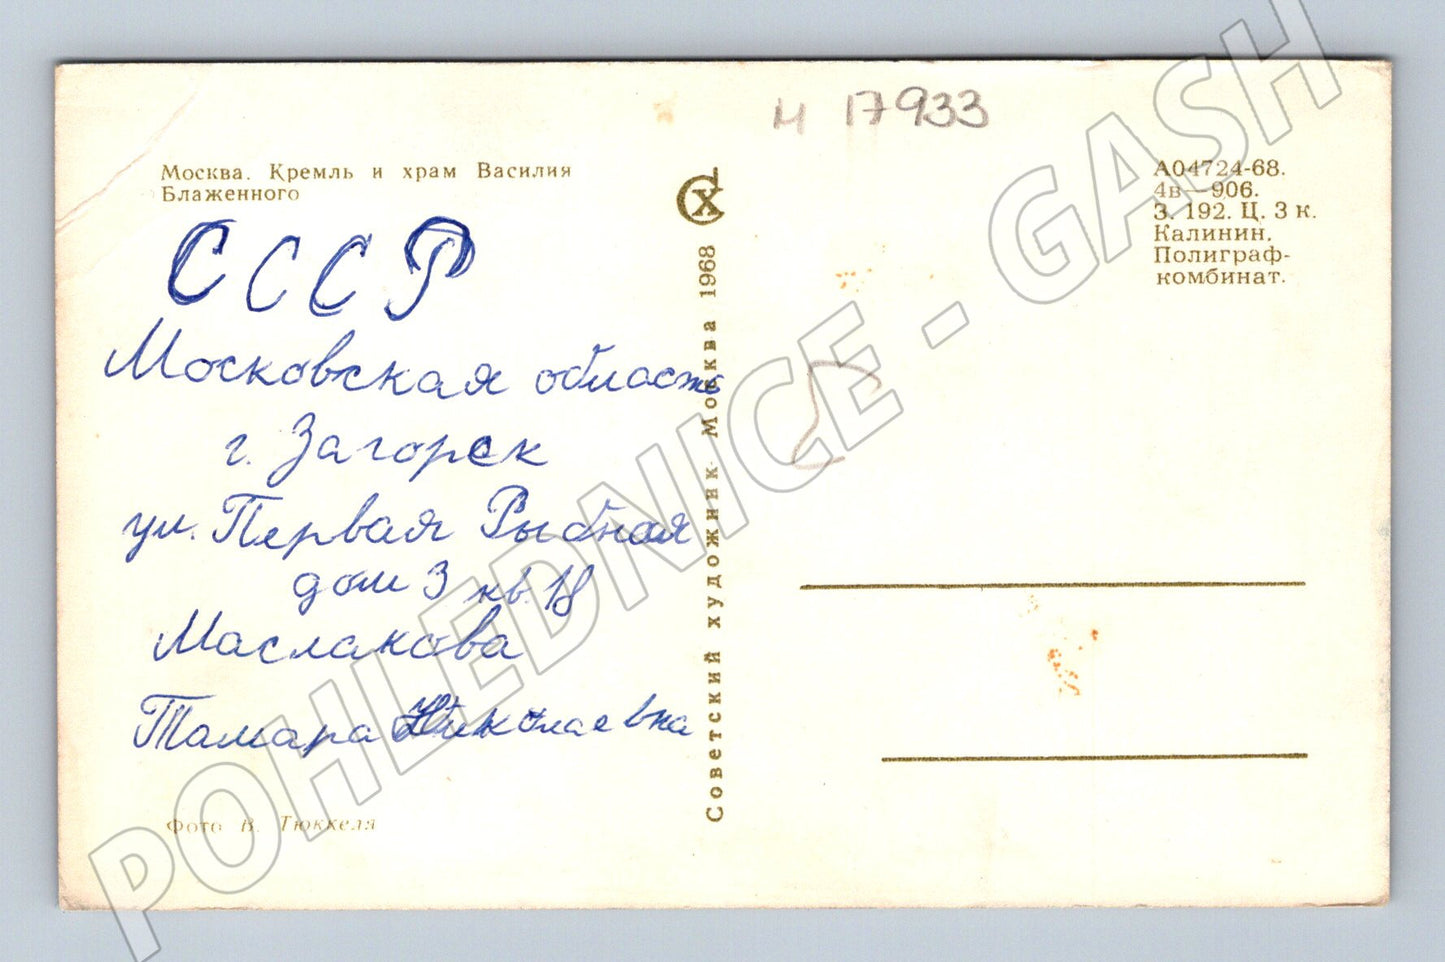 и 17933
Москва. Кремль и храм Василия
Блаженного
СССР
Московская область
г. Загорск
ул. Первая Рыбная
дом 3 кв. 18
Маслакова
Тамара Николаевна
Фото В. Тюккеля
Советский художник. Москва 1968
СХ
А04724-68.
4в—906.
З. 192. Ц. 3 к.
Калинин.
Полиграф-
комбинат.
POHLEDNICE - GASH